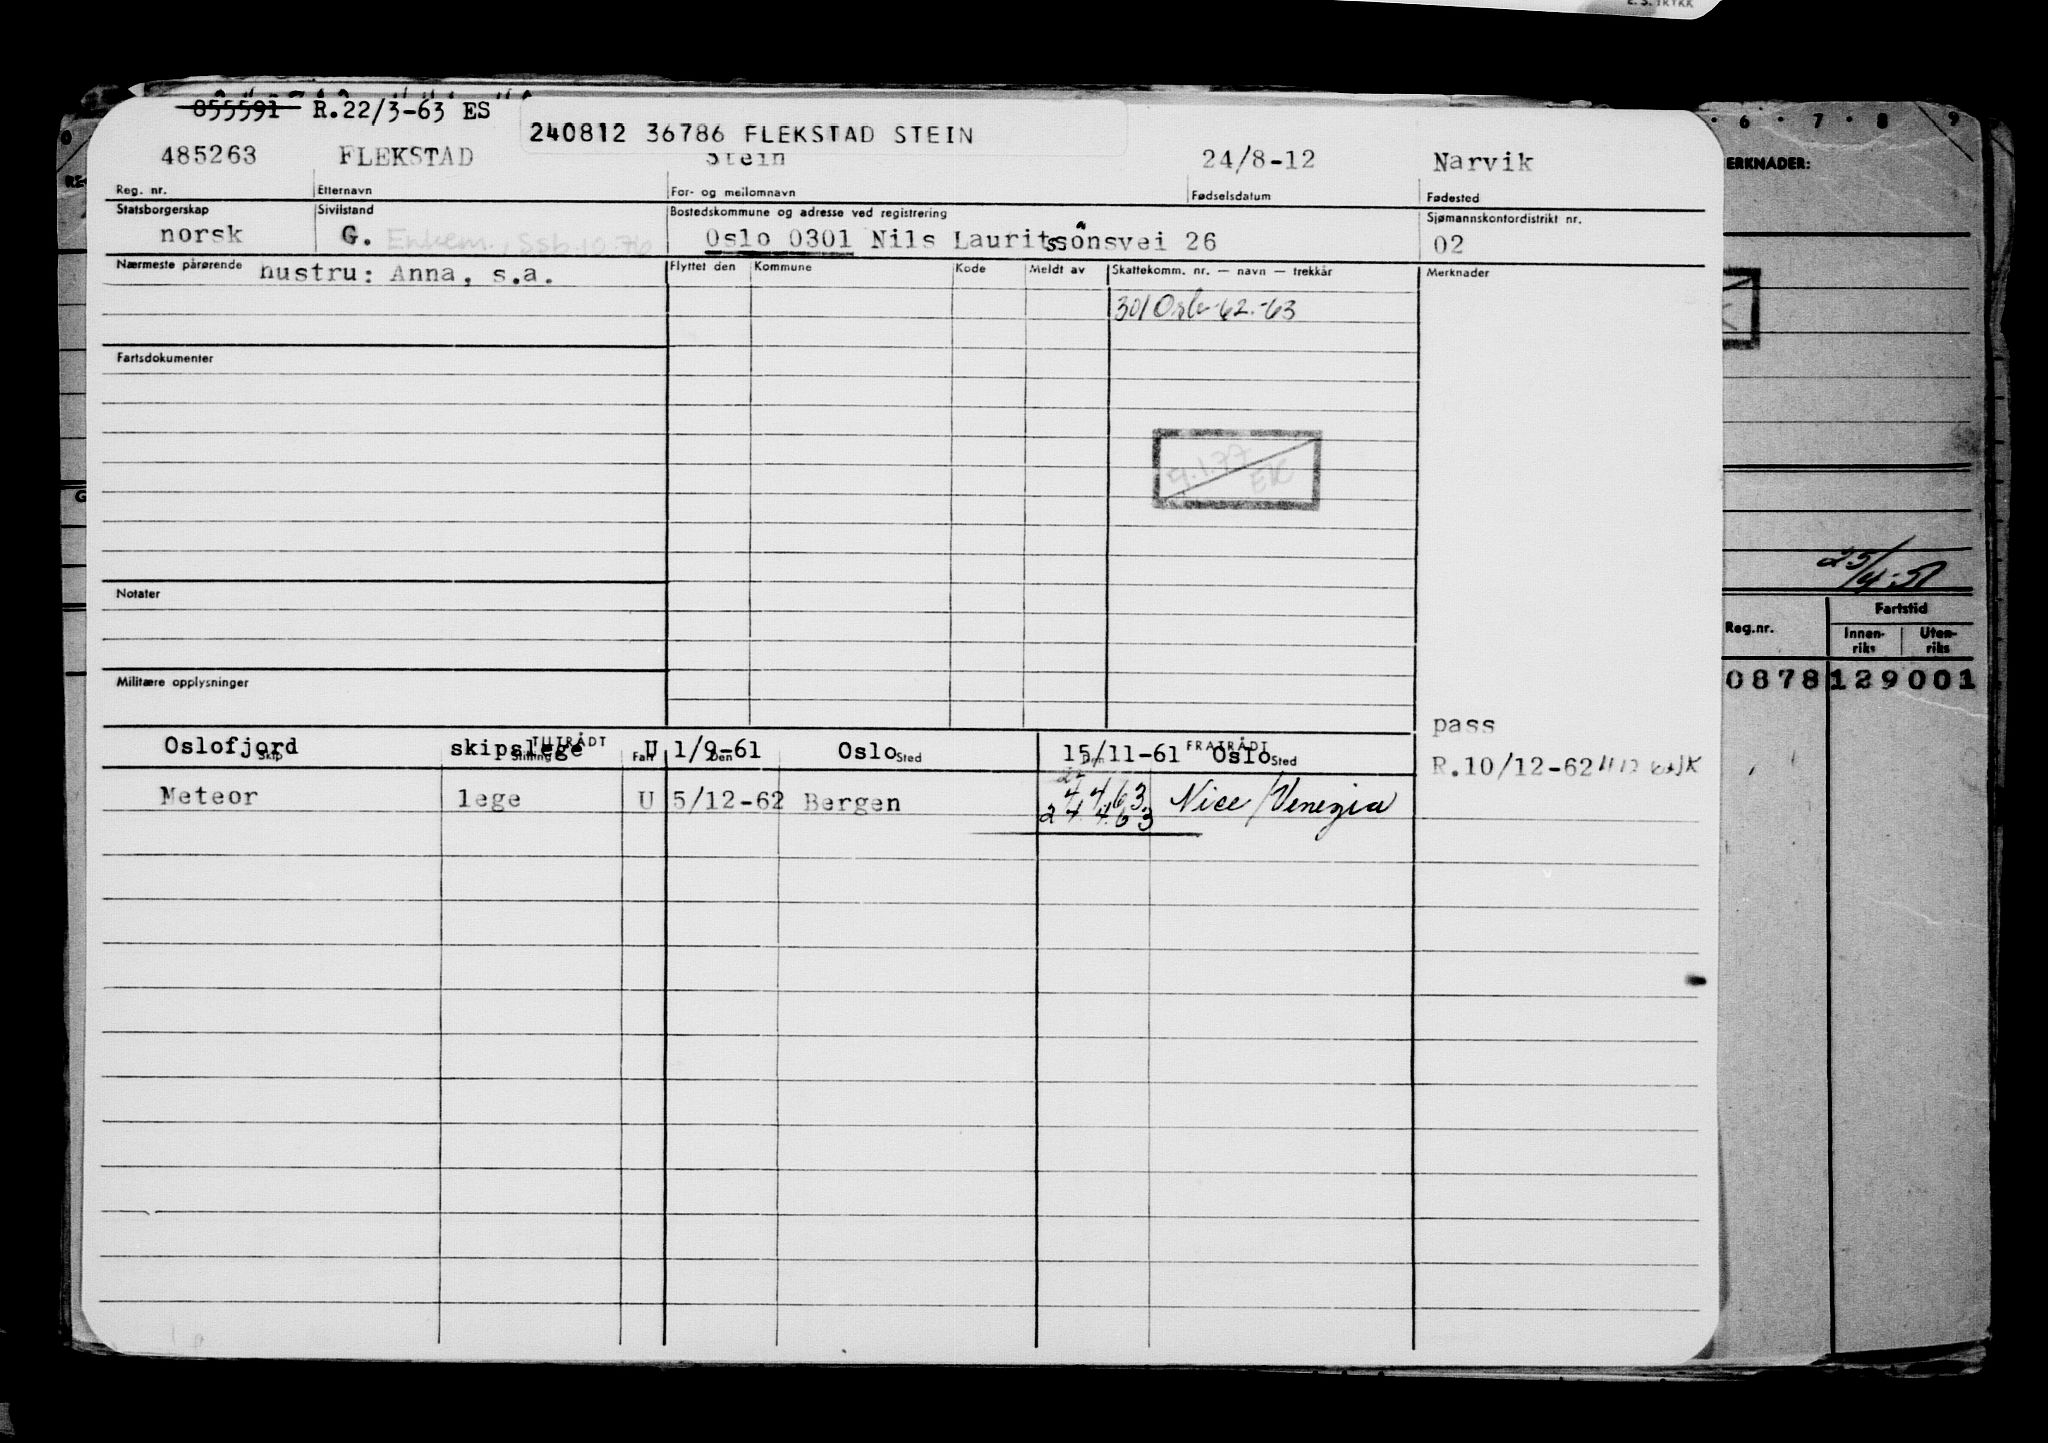 E. S. TRYKK
855591 R.22/3-63 ES
240812 36786 FLEKSTAD STEIN
485263 FLEKSTAD Stein 24/8-12 Narvik
Reg. nr. Etternavn For- og mellomnavn Fødselsdatum Fødested
Statsborgerskap Sivilstand Bostedskommune og adresse ved registrering Sjømannskontordistrikt nr.
norsk G. Enkem., Ssb.10.76 Oslo 0301 Nils Lauritssønsvei 26 02
Nærmeste pårørende hustru: Anna, s.a. Flyttet den Kommune Kode Meldt av Skattekomm. nr. — navn — trekkår Merknader
301 Oslo-62.-63
Fartsdokumenter
EK
Notater
Militære opplysninger
pass
TILTRÅDT FRATRÅDT
Skip Stilling Fart Den Sted Den Sted
Oslofjord skipslege U 1/9-61 Oslo 15/11-61 Oslo
R.10/12-62
Meteor lege U 5/12-62 Bergen 24 4 63 Nice/Venezia
6 7 8 9
ERKNADER:
25/4-51
Reg.nr. Fartstid
Innen-riks Uten-riks
0878 129001